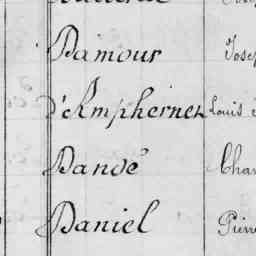 Damour Jose
D'Amphernet Louis
Dandé Cha
Daniel Pier